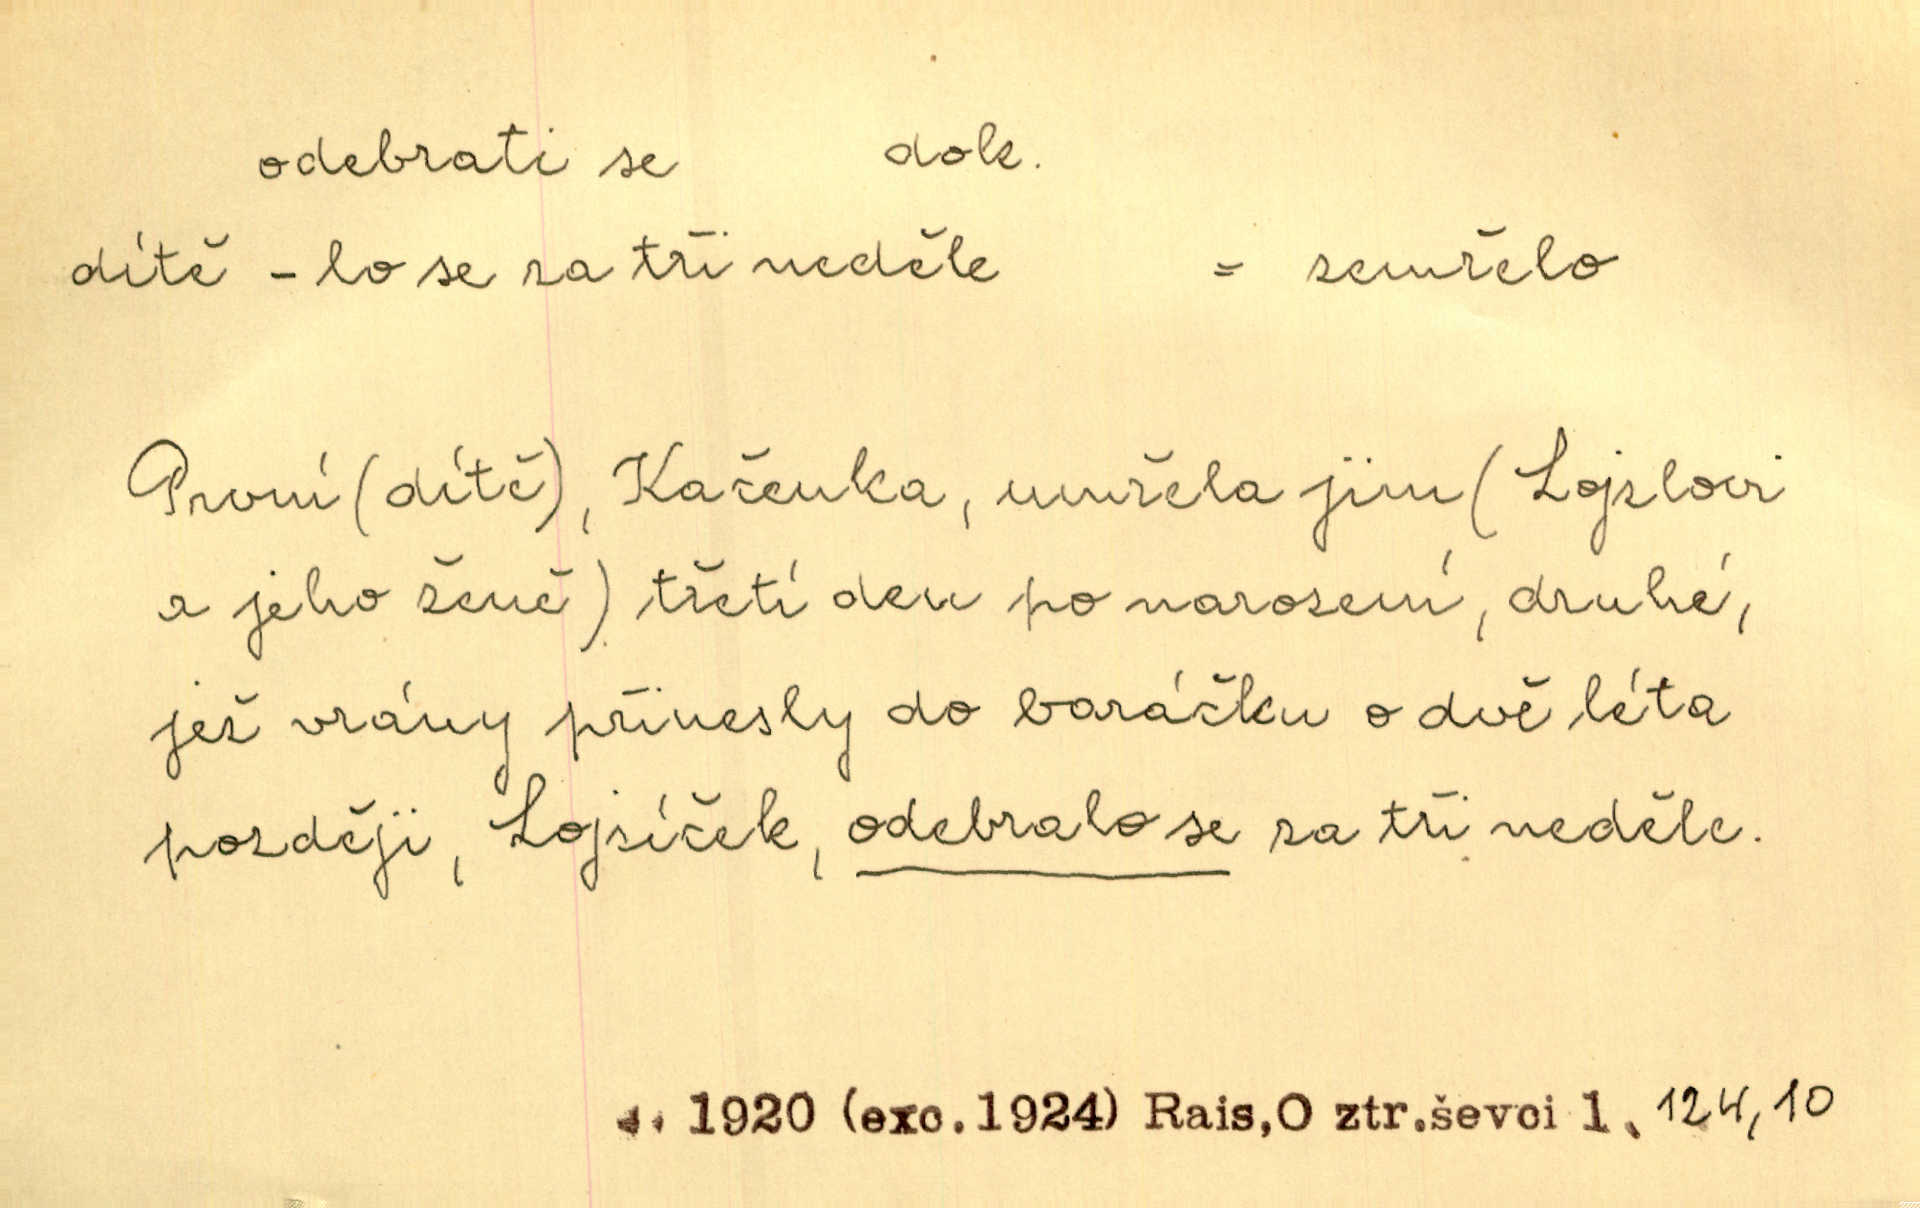 odebrati se dok.
dítě -lo se za tři neděle = zemřelo
První (dítě), Kačenka, umřela jim (Lojzlovi
a jeho ženě) třetí den po narození, druhé,
jež vrány přinesly do baráčku o dvě léta
později, Lojzíček, odebralo se za tři neděle.
1920 (exc. 1924) Rais, O ztr. ševci 1, 124, 10